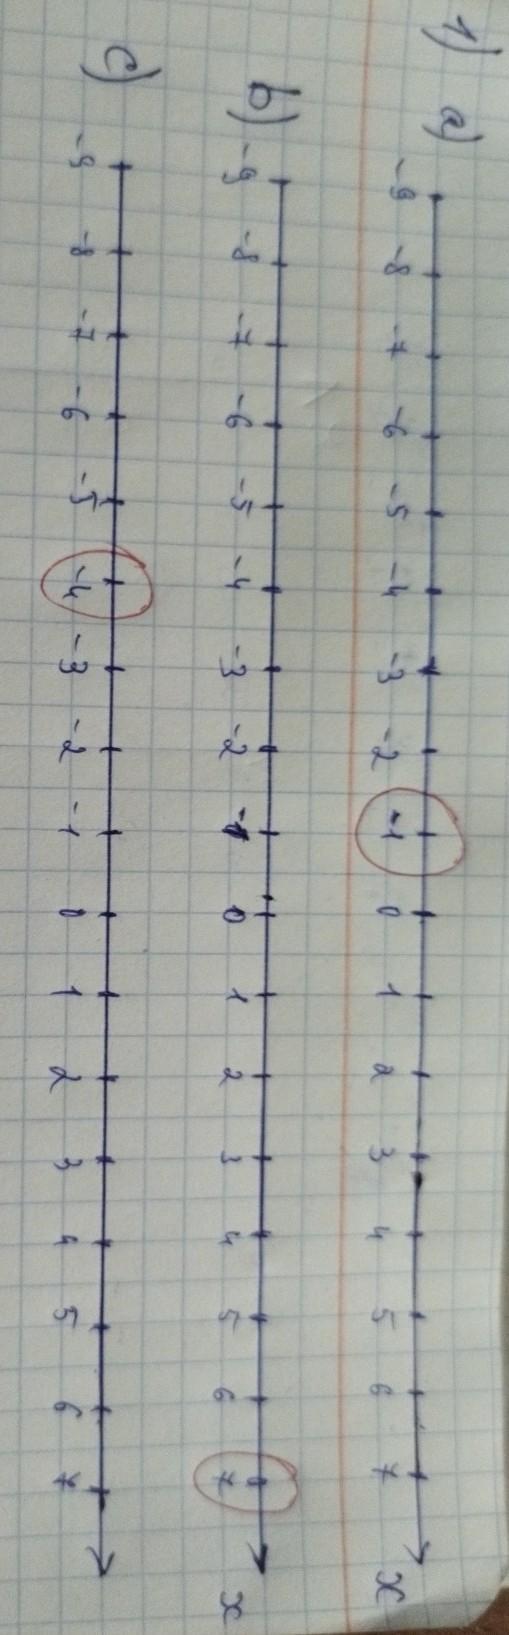 1) a)
-9 -8 -7 -6 -5 -4 -3 -2 -1 0 1 2 3 4 5 6 7 x
b)
-9 -8 -7 -6 -5 -4 -3 -2 -1 0 1 2 3 4 5 6 7 x
c)
-9 -8 -7 -6 -5 -4 -3 -2 -1 0 1 2 3 4 5 6 7